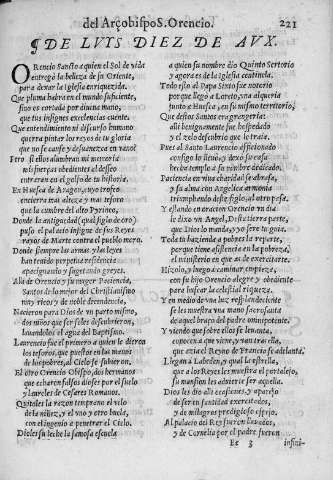 del Arçobispo S. Orencio. 221
¶ DE LUYS DIEZ DE AUX.
ORencio Sancto a quien el Sol de vida
entregò la belleza de su Oriente,
para dexar la Iglesia enriquezida.
Que pluma habra en el mundo suficiente,
sino es cortada por diuina mano,
que tus insignes excelencias cuente.
Que entendimiento ni discurso humano
querra pintar los reyes de tu gloria
que no se canse y desuanezca en vano?
Pero si ellos alumbran mi memoria
mis fuerças obedientes al desseo
entrarán en el golfo de tu historia.
En Huesca de Aragon, cuyo tropheo
encierra mas alteza y mas tesoro
que la cumbre del alto Pyrineo,
Donde la antiguedad (qual siglo de oro)
puso el palacio insigne de sus Reyes
rayos de Marte contra el pueblo moro.
Donde siempre las armas y las leyes
han tenido perpetua residencia
apacignando y sugetando greyes.
Alia de Orencio y su mayor Paciencia,
Santos de lo mejor del Christianismo
muy ricos y de noble decendencia,
Nacieron para Dios de un parto mismo,
dos niños que ser soles descubrieron,
lauandoles el agua del Baptismo.
Laurencio fue el primero a quien le dieron
los tesoros, que puestos en las manos
de los pobres, al Cielo se subieron.
El otro Orencio Obispo, dos hermanos
que echaron falsos dioses por el suelo
y laureles de Cesares Romanos.
Quitoles la razon temprano el velo
de la niñez, y el uno y otro buela,
con el ingenio a penetrar el Cielo.
Dioles su leche la famosa escuela
a quien su nombre dio Quinto Sertorio
y agora es de la Iglesia centinela.
Todo esso al Papa Sixto fue notorio
por que llegò a Loreto, una alqueria
junto a Huesca, en su mismo territorio;
Que destos Santos era grangeria:
alli benignamente fue hospedado
y el zelo descubrio que le traìa.
Pues al Santo Laurencio afficionado
consigo lo lleuò, y dexò su casa
hecho templo a su nombre dedicado.
Paciencia en viua charidad se abrasa,
y su alma con Angelica armonia
triumphando deste siglo, al otro passa.
Y estando en oracion Orencio un dia
le dixo un Angel, Dexa tierra parte,
que Dios lo manda, y yo sere tu guia.
Toda tu hazienda a pobres la reparte,
porque tome assistencia en la pobreza,
el ministerio en que as de exercitarte.
Hizolo, y luego a caminar empieça,
con su hijo Orencio alegre y obediente
para buscar la celestial riqueza.
Y en medio de una luz resplandeciente
se les muestra una mano sacrosanta
de aquel braço del padre omnipotente.
Y viendo que sobre ellos se leuanta,
conocen a que viene, y van tras ella,
que azia el Reyno de Francia se adelanta.
Llegan a Labeden, y qual la estrella,
que a los Reyes les muestra el portalejo,
su mansion les aduierte ser aquella.
Dios les dio alli ocasiones, y aparejo
de ser en santidad exercitados,
y de milagros prodigioso espejo.
Al palacio del Rey fueron lleuados,
y de Cornelia por el padre fueron
Ee 3 infini-